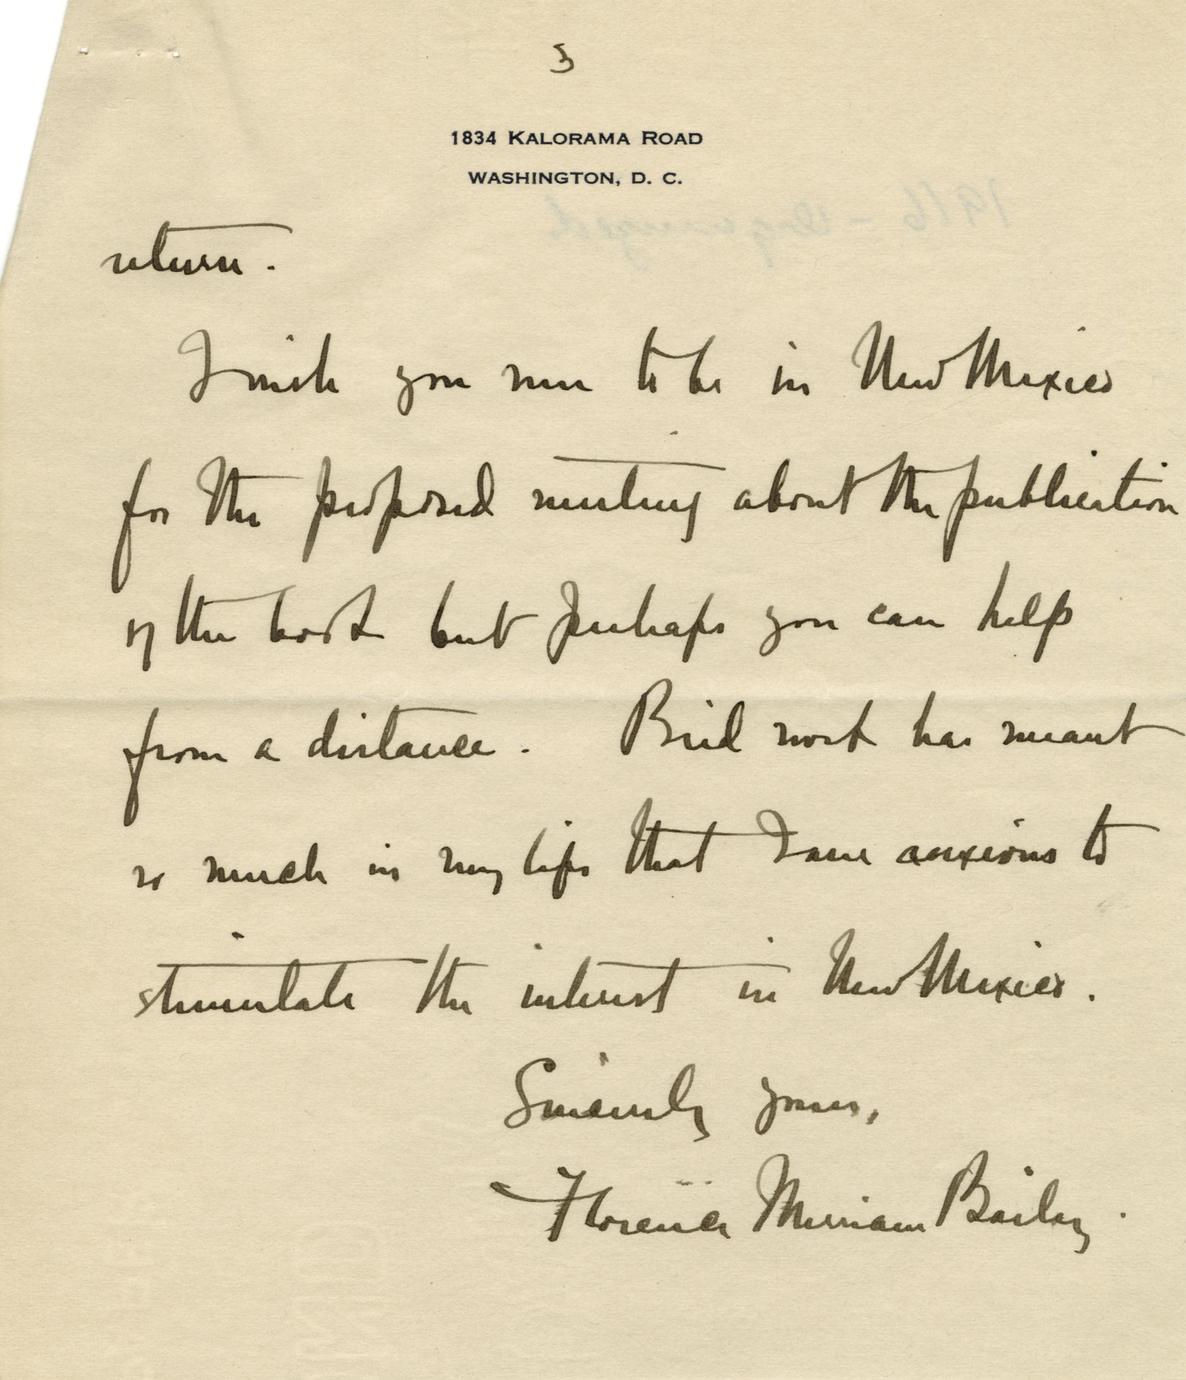 3
1834 KALORAMA ROAD
WASHINGTON, D. C.
return.
I wish you were to be in New Mexico
for the proposed meeting about the publication
of the book but perhaps you can help
from a distance. Bird work has meant
so much in my life that I am anxious to
stimulate the interest in New Mexico.
Sincerely yours,
Florence Merriam Bailey.